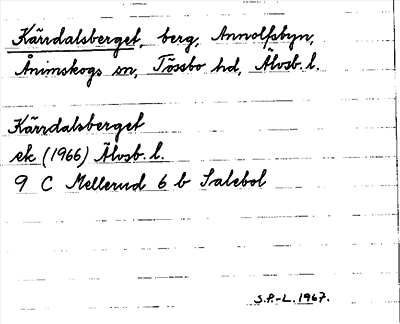 Kärrdalsberget, berg, Annolfsbyn,
Ånimskogs sn, Tössbo hd, Älvsb. l.
Kärrdalsberget
ek (1966) Älvsb. l.
9 C Mellerud 6 b Salebol
S.P.-L. 1967.